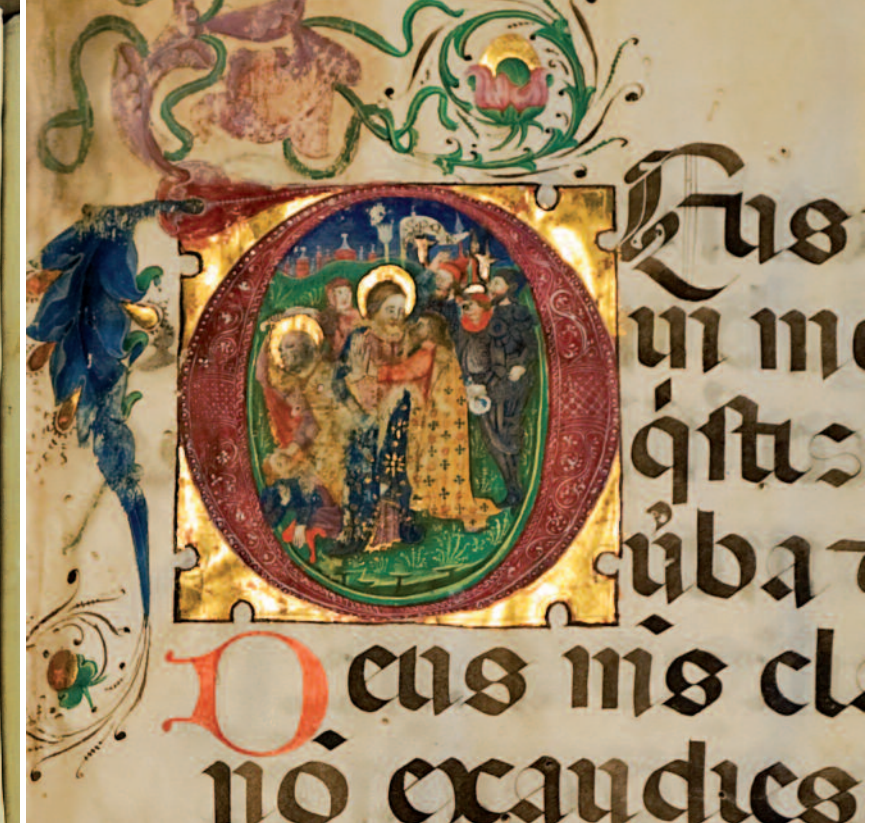 DEus
in me
q̇sti s
v̉ba
Deus m̄s cl
nō exaudies